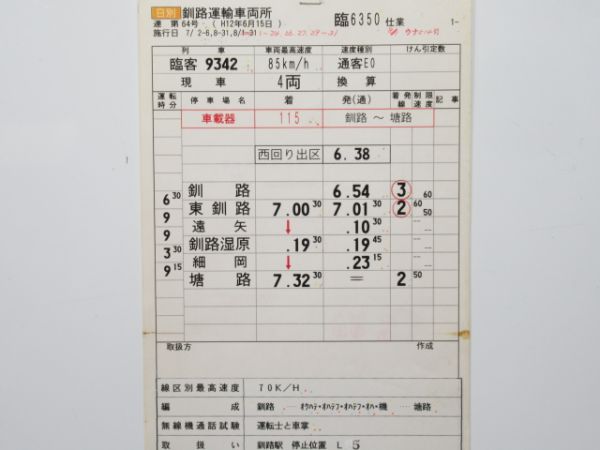 日別 釧路運輸車両所 臨6350 仕業 1-
運 第 64号 （H12年6月15日）
施行日 7/ 2-6,8-31,8/1-31
列車 車両最高速度 速度種別 けん引定数
臨客 9342 85km/h 通客E0
現車 4両 換算
運転時分 停車場名 着 発(通) 着発線 制限速度 記事
車載器 115 釧路 ～ 塘路
西回り出区 6.38
釧路 6.54 3 60
6 30
東釧路 7.00 30 7.01 30 2 60 50
9
遠矢 ↓ .10 30
9
釧路湿原 .19 30 .19 45
3 30
細岡 ↓ .23 15
9 15
塘路 7.32 30 = 2 50
取扱方 作成
線区別最高速度 70K/H
編成 釧路 ---オクハテ-オハテフ-オハテフ-オハ-機 ---塘路
無線機通話試験 運転士と車掌
取扱い 釧路駅 停止位置 L 5